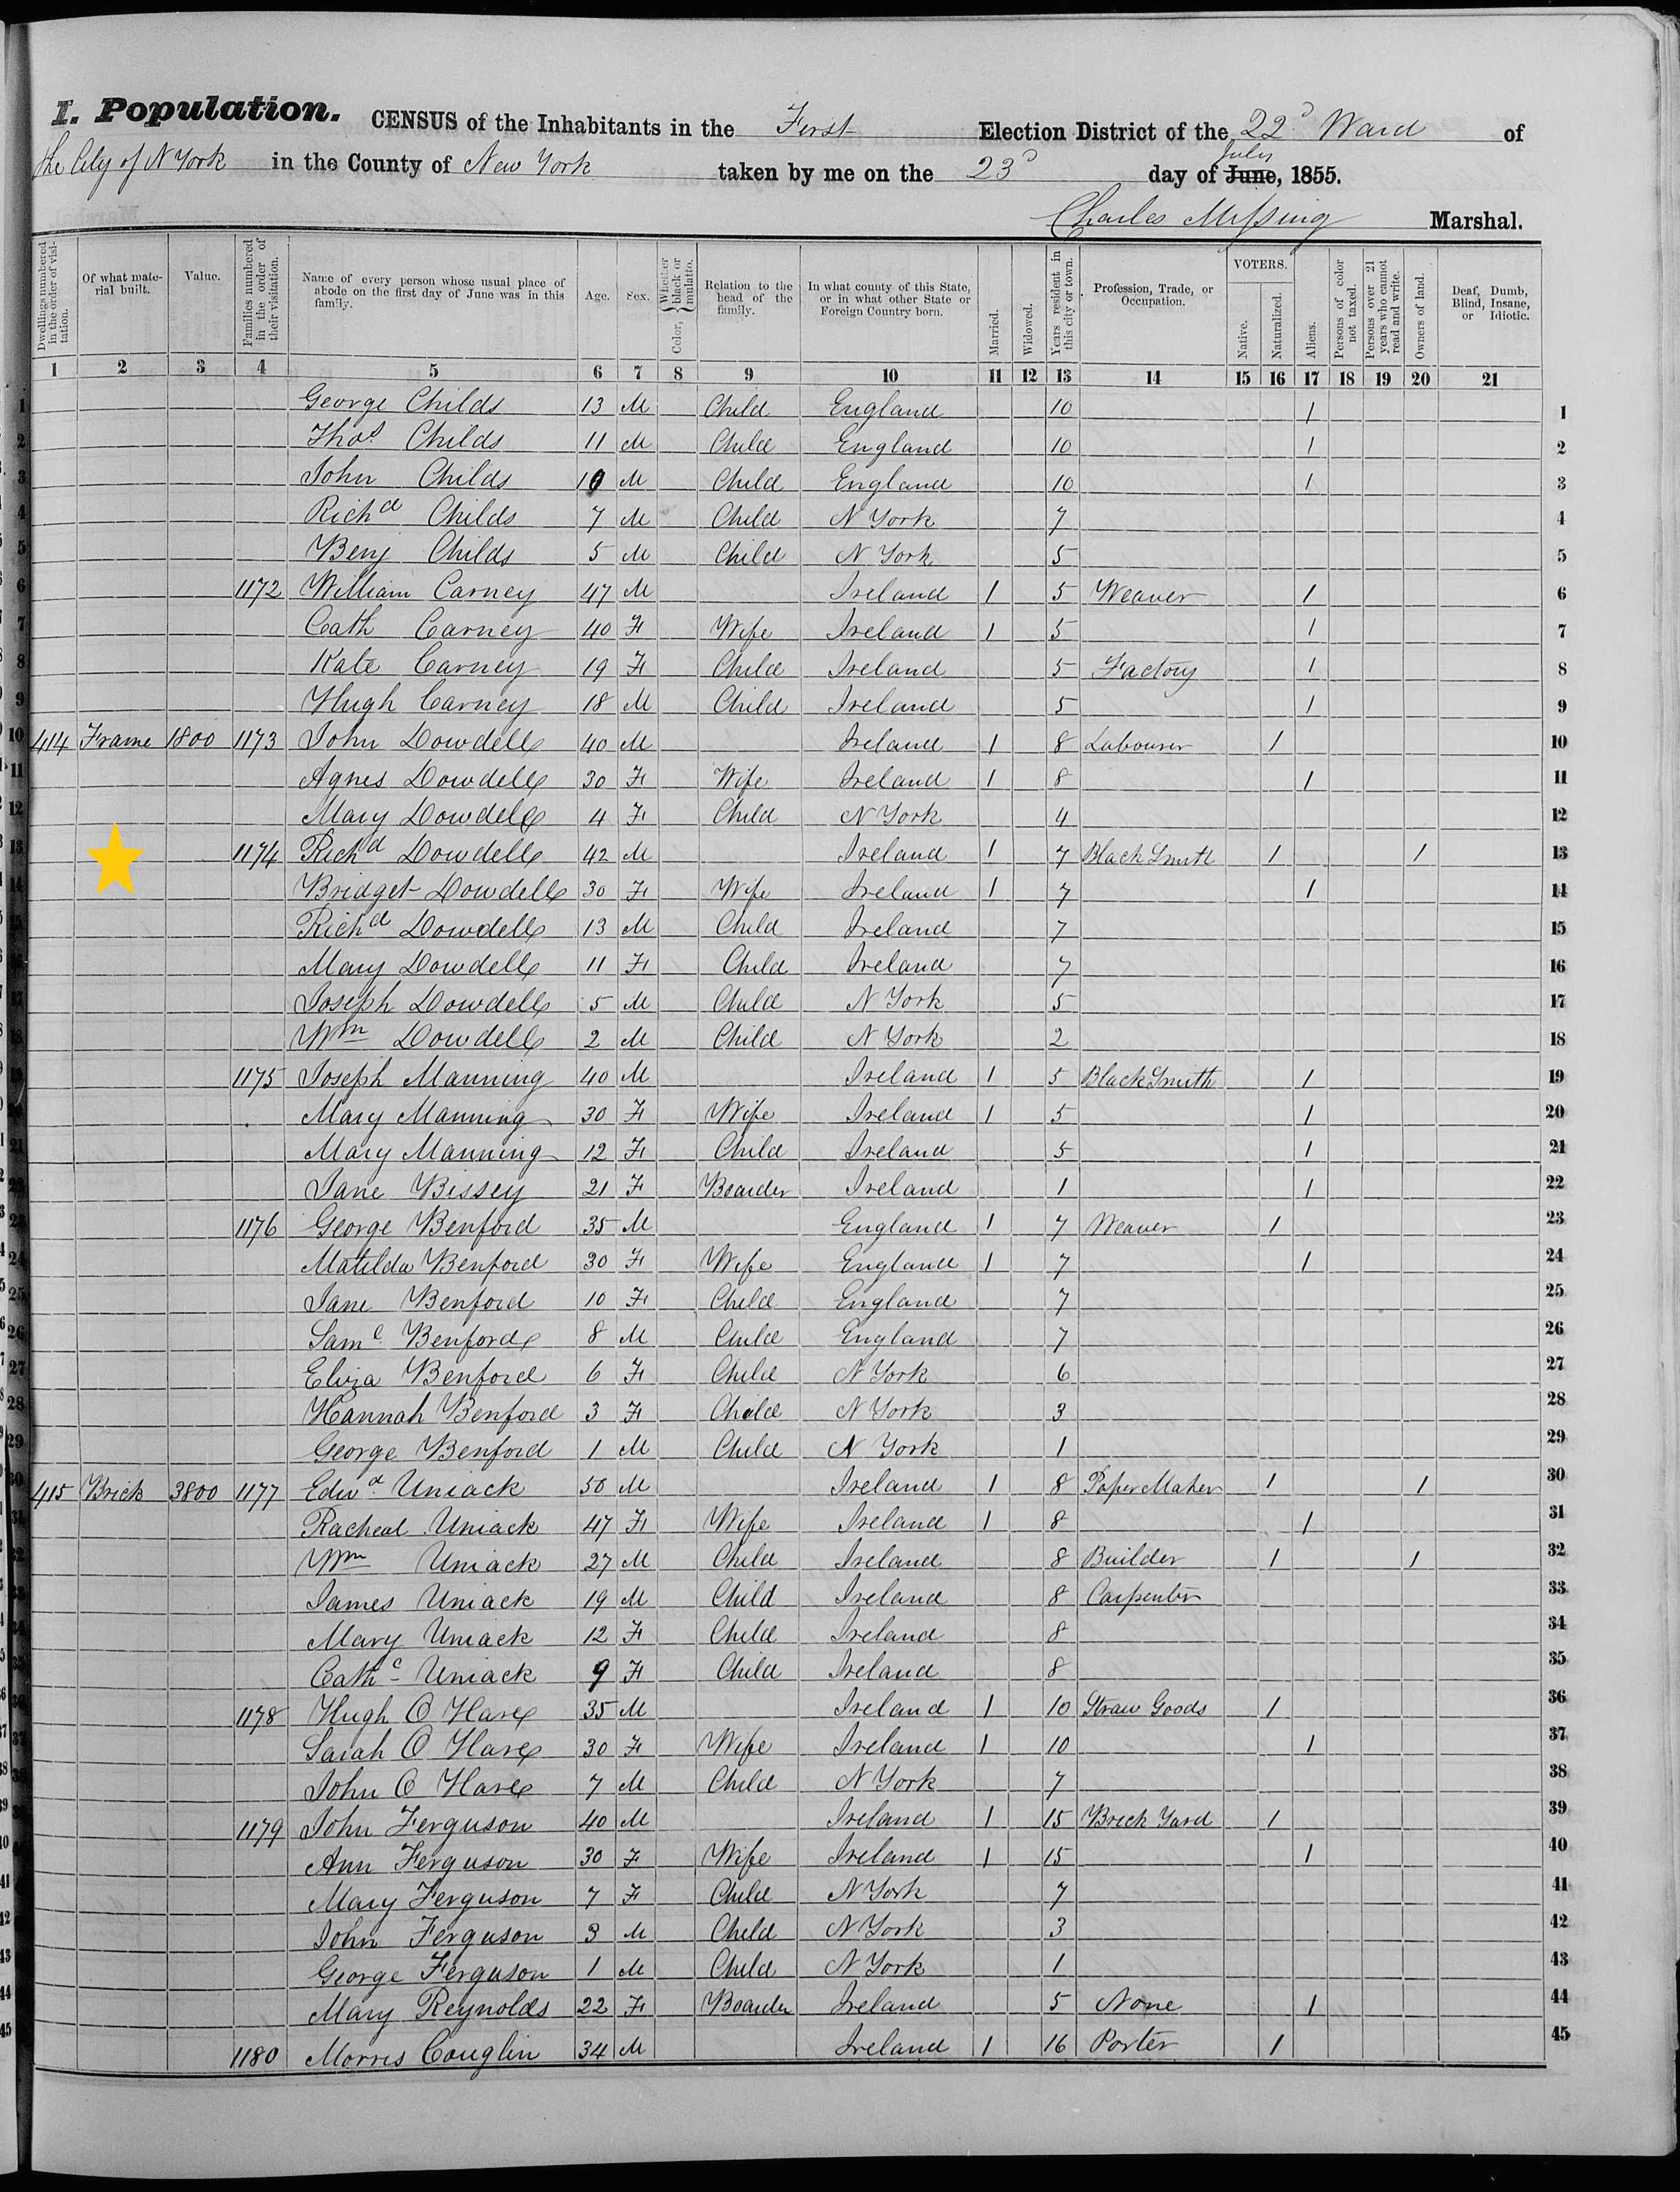 I. Population. CENSUS of the Inhabitants in the First Election District of the 22d Ward of
the City of N York in the County of New York taken by me on the 23d day of June, 1855.
July
Charles Missing Marshal.
Dwellings numbered in the order of visitation. Of what material built. Value. Families numbered in the order of their visitation. Name of every person whose usual place of abode on the first day of June was in this family. Age. Sex. Color, Whether black or mulatto. Relation to the head of the family. In what county of this State, or in what other State or Foreign Country born. Married. Widowed. Years resident in this city or town. Profession, Trade, or Occupation. VOTERS. Native. Naturalized. Aliens. Persons of color not taxed. Persons over 21 years who cannot read and write. Owners of land. Deaf, Dumb, Blind, Insane, or Idiotic.
1 2 3 4 5 6 7 8 9 10 11 12 13 14 15 16 17 18 19 20 21
1 George Childs 13 M Child England 10 1 1
2 Thos Childs 11 M Child England 10 1 2
3 John Childs 10 M Child England 10 1 3
4 Richd Childs 7 M Child N York 7 4
5 Benj Childs 5 M Child N York 5 5
6 1172 William Carney 47 M Ireland 1 5 Weaver 1 6
7 Cath Carney 40 F Wife Ireland 1 5 1 7
8 Kate Carney 19 F Child Ireland 5 Factory 1 8
9 Hugh Carney 18 M Child Ireland 5 1 9
10 414 Frame 1800 1173 John Dowdell 40 M Ireland 1 8 Labourer 1 10
11 Agnes Dowdell 30 F Wife Ireland 1 8 1 11
12 Mary Dowdell 4 F Child N York 4 12
13 1174 Richd Dowdell 42 M Ireland 1 7 Black Smith 1 1 13
14 Bridget Dowdell 30 F Wife Ireland 1 7 1 14
15 Richd Dowdell 13 M Child Ireland 7 15
16 Mary Dowdell 11 F Child Ireland 7 16
17 Joseph Dowdell 5 M Child N York 5 17
18 Wm Dowdell 2 M Child N York 2 18
19 1175 Joseph Manning 40 M Ireland 1 5 Black Smith 1 19
20 Mary Manning 30 F Wife Ireland 1 5 1 20
21 Mary Manning 12 F Child Ireland 5 1 21
22 Jane Bissey 21 F Boarder Ireland 1 1 22
23 1176 George Benford 35 M England 1 7 Weaver 1 23
24 Matilda Benford 30 F Wife England 1 7 1 24
25 Jane Benford 10 F Child England 7 25
26 Saml Benford 8 M Child England 7 26
27 Eliza Benford 6 F Child N York 6 27
28 Hannah Benford 3 F Child N York 3 28
29 George Benford 1 M Child N York 1 29
30 415 Brick 3800 1177 Edwd Uniack 50 M Ireland 1 8 Paper Maker 1 1 30
31 Racheal Uniack 47 F Wife Ireland 1 8 1 31
32 Wm Uniack 27 M Child Ireland 8 Builder 1 1 32
33 James Uniack 19 M Child Ireland 8 Carpenter 33
34 Mary Uniack 12 F Child Ireland 8 34
35 Cathe Uniack 9 F Child Ireland 8 35
36 1178 Hugh O Hare 35 M Ireland 1 10 Straw Goods 1 36
37 Sarah O Hare 30 F Wife Ireland 1 10 1 37
38 John O Hare 7 M Child N York 7 38
39 1179 John Ferguson 40 M Ireland 1 15 Brick Yard 1 39
40 Ann Ferguson 30 F Wife Ireland 1 15 1 40
41 Mary Ferguson 7 F Child N York 7 41
42 John Ferguson 3 M Child N York 3 42
43 George Ferguson 1 M Child N York 1 43
44 Mary Reynolds 22 F Boarder Ireland 5 None 1 44
45 1180 Morris Couglin 34 M Ireland 1 16 Porter 1 45